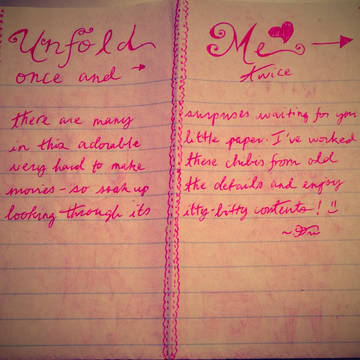 Unfold Me
once and twice
there are many surprises waiting for you
in this adorable little paper. I've worked
very hard to make these from old
movies - so soak up the details and enjoy
looking through its itty-bitty contents! :)